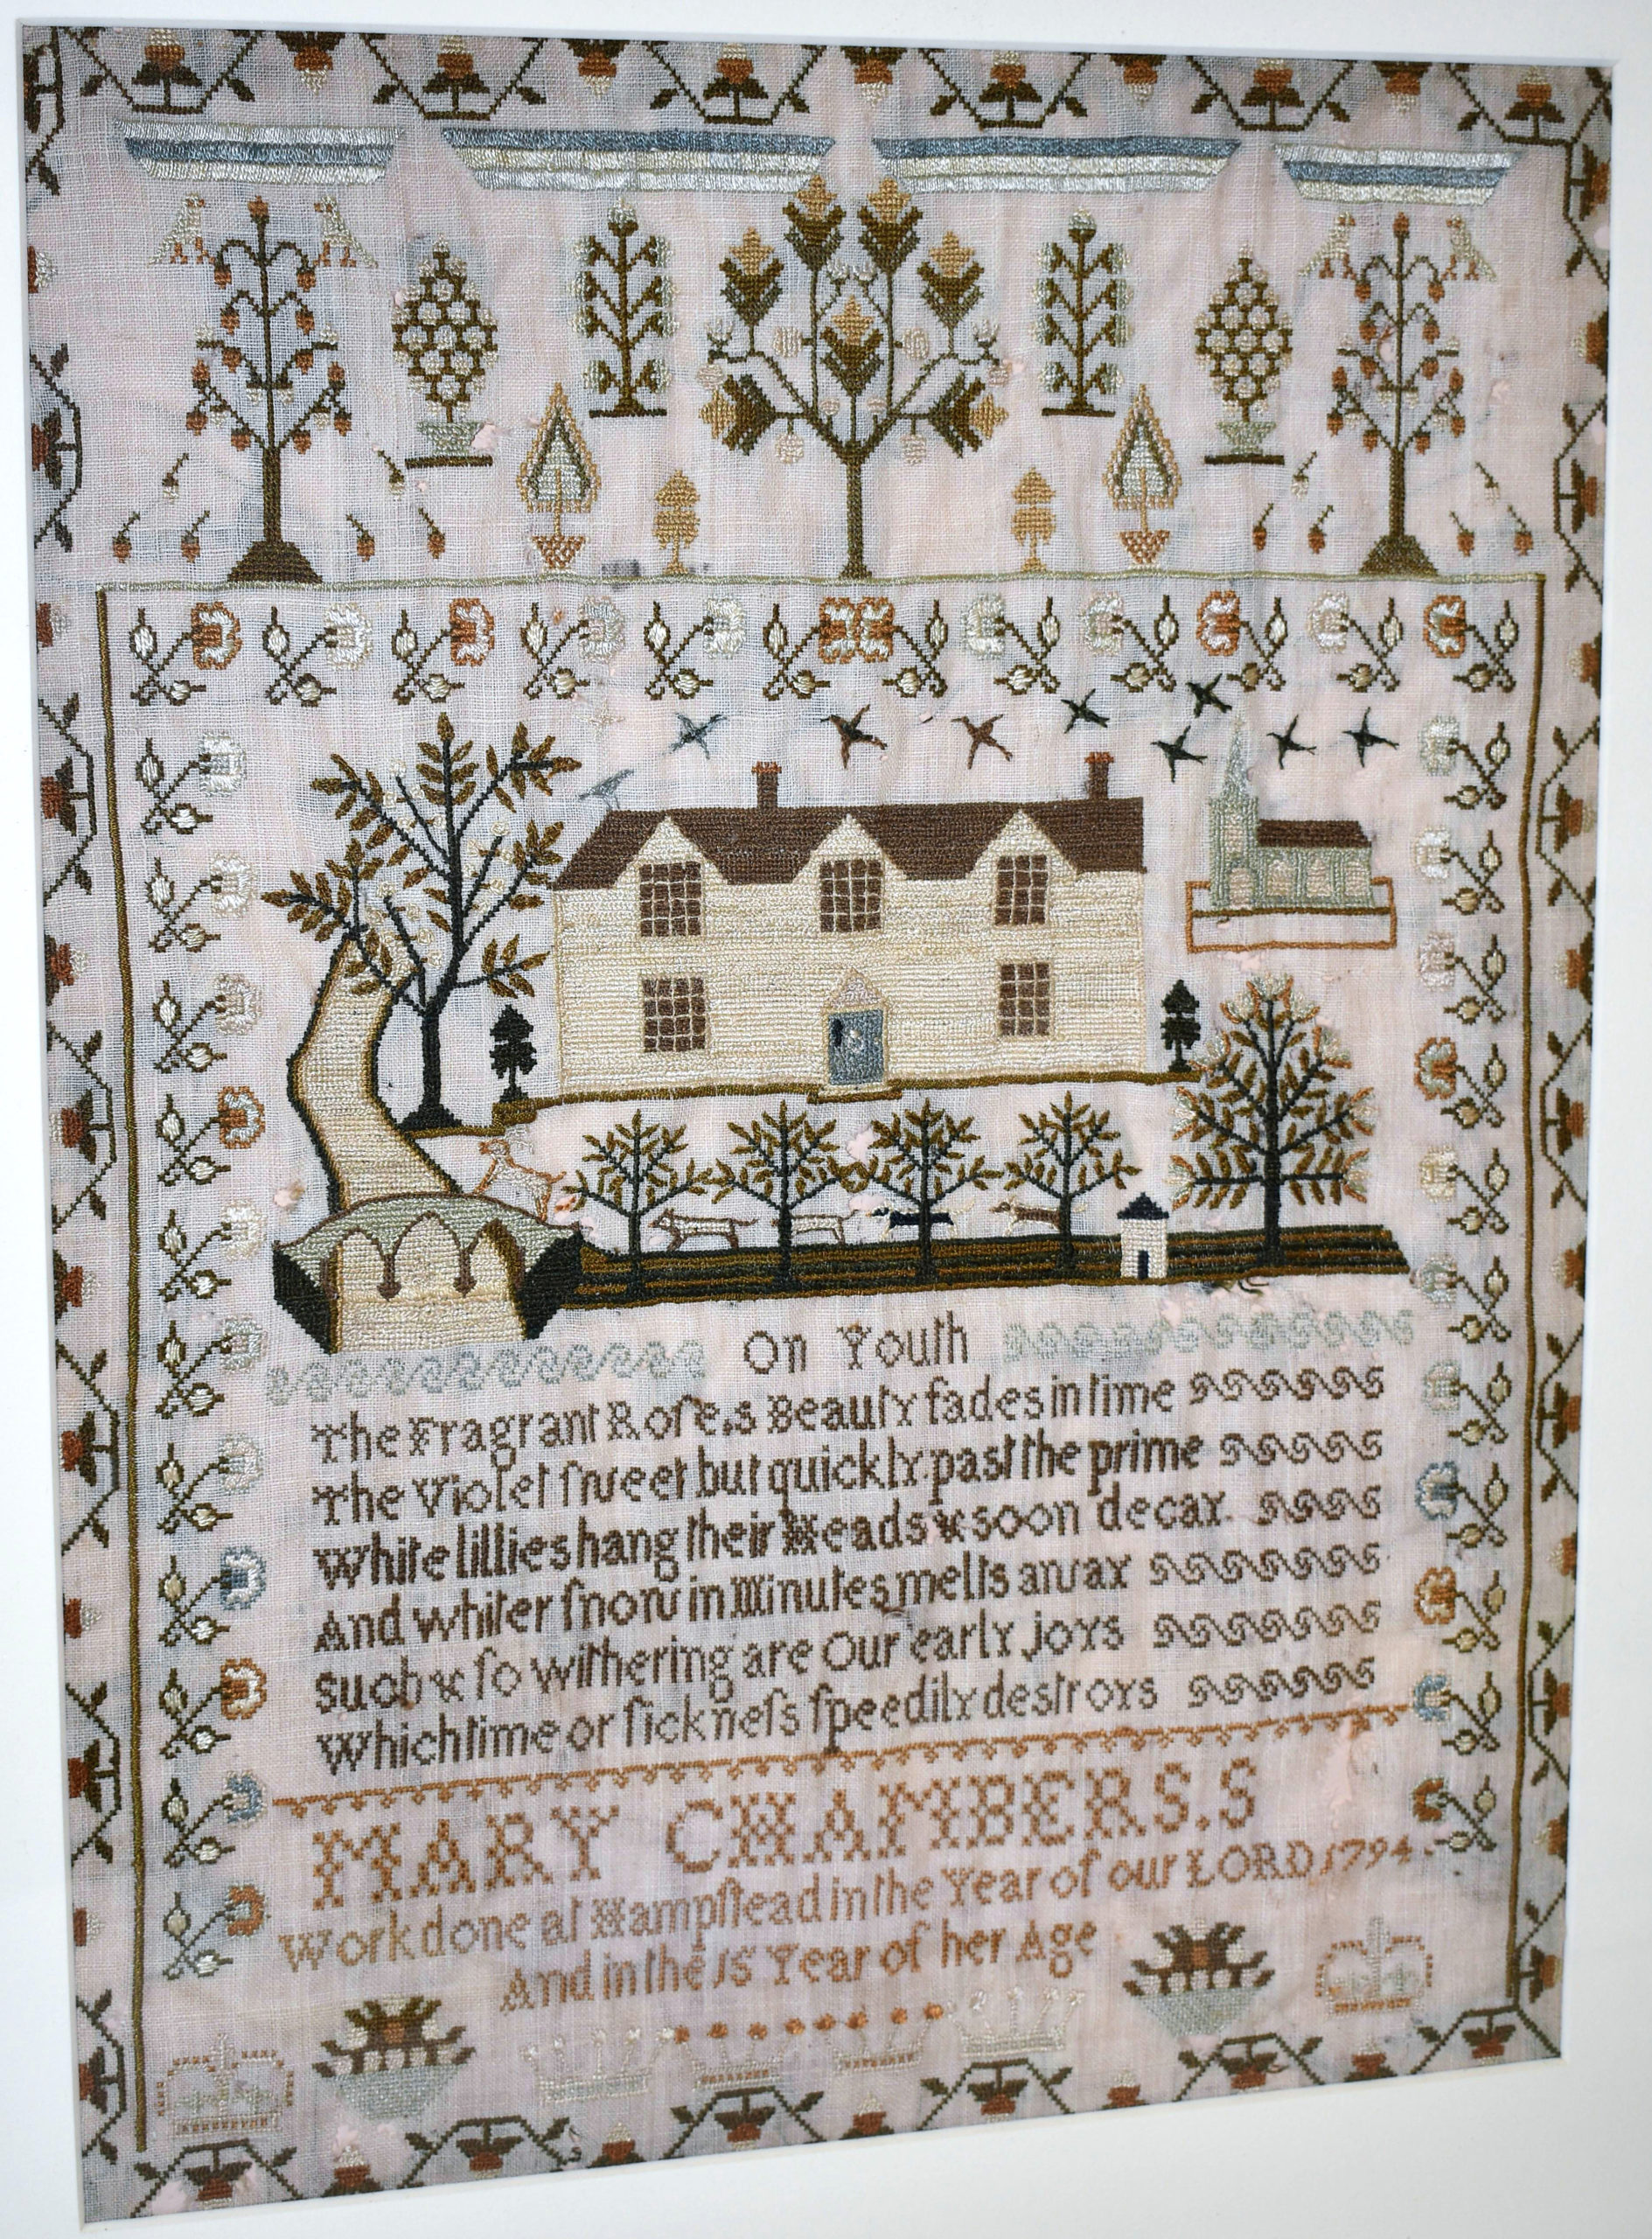 On Youth
The Fragrant Roſe,s Beauty fades in time
The Violet ſweet but quickly past the prime
White lillies hang their Heads & soon decay.
And whiter ſnow in Minutes melts away
Such & ſo withering are Our early joys
Which time or ſickneſs ſpeedily destroys
MARY CHAMBERS.S
Work done at Hampſtead in the Year of our LORD 1794
And in the 15 Year of her Age